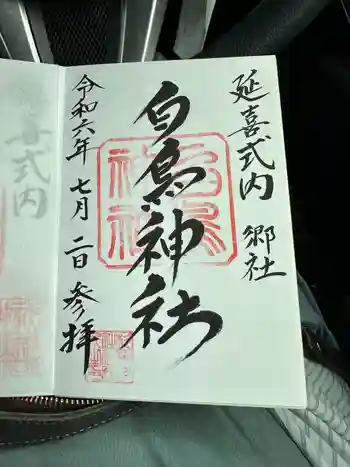 延喜式内 郷社
白鳥神社
令和六年 七月 二日 参拝